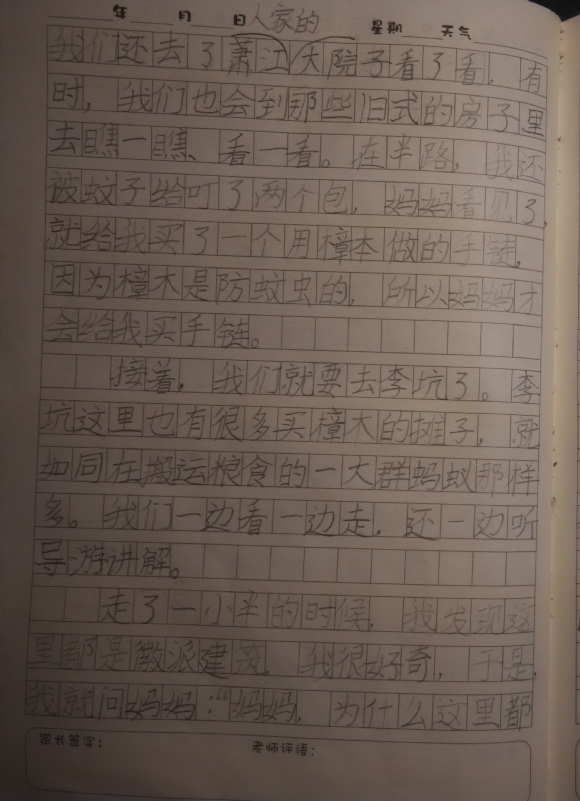 年 月 日 星期 天气
人家的
我们还去了萧江大院子看了看，有
时，我们也会到那些旧式的房子里
去瞧一瞧、看一看。在半路，我还
被蚊子给叮了两个包，妈妈看见了，
就给我买了一个用樟本做的手链，
因为樟木是防蚊虫的，所以妈妈才
会给我买手链。
接着，我们就要去李坑了。李
坑这里也有很多买樟木的摊子，就
如同在搬运粮食的一大群蚂蚁那样
多。我们一边看一边走，还一边听
导游讲解。
走了一小半的时候，我发现这
里都是徽派建筑，我很好奇，于是，
我就问妈妈：“妈妈，为什么这里都
家长签字： 老师评语：